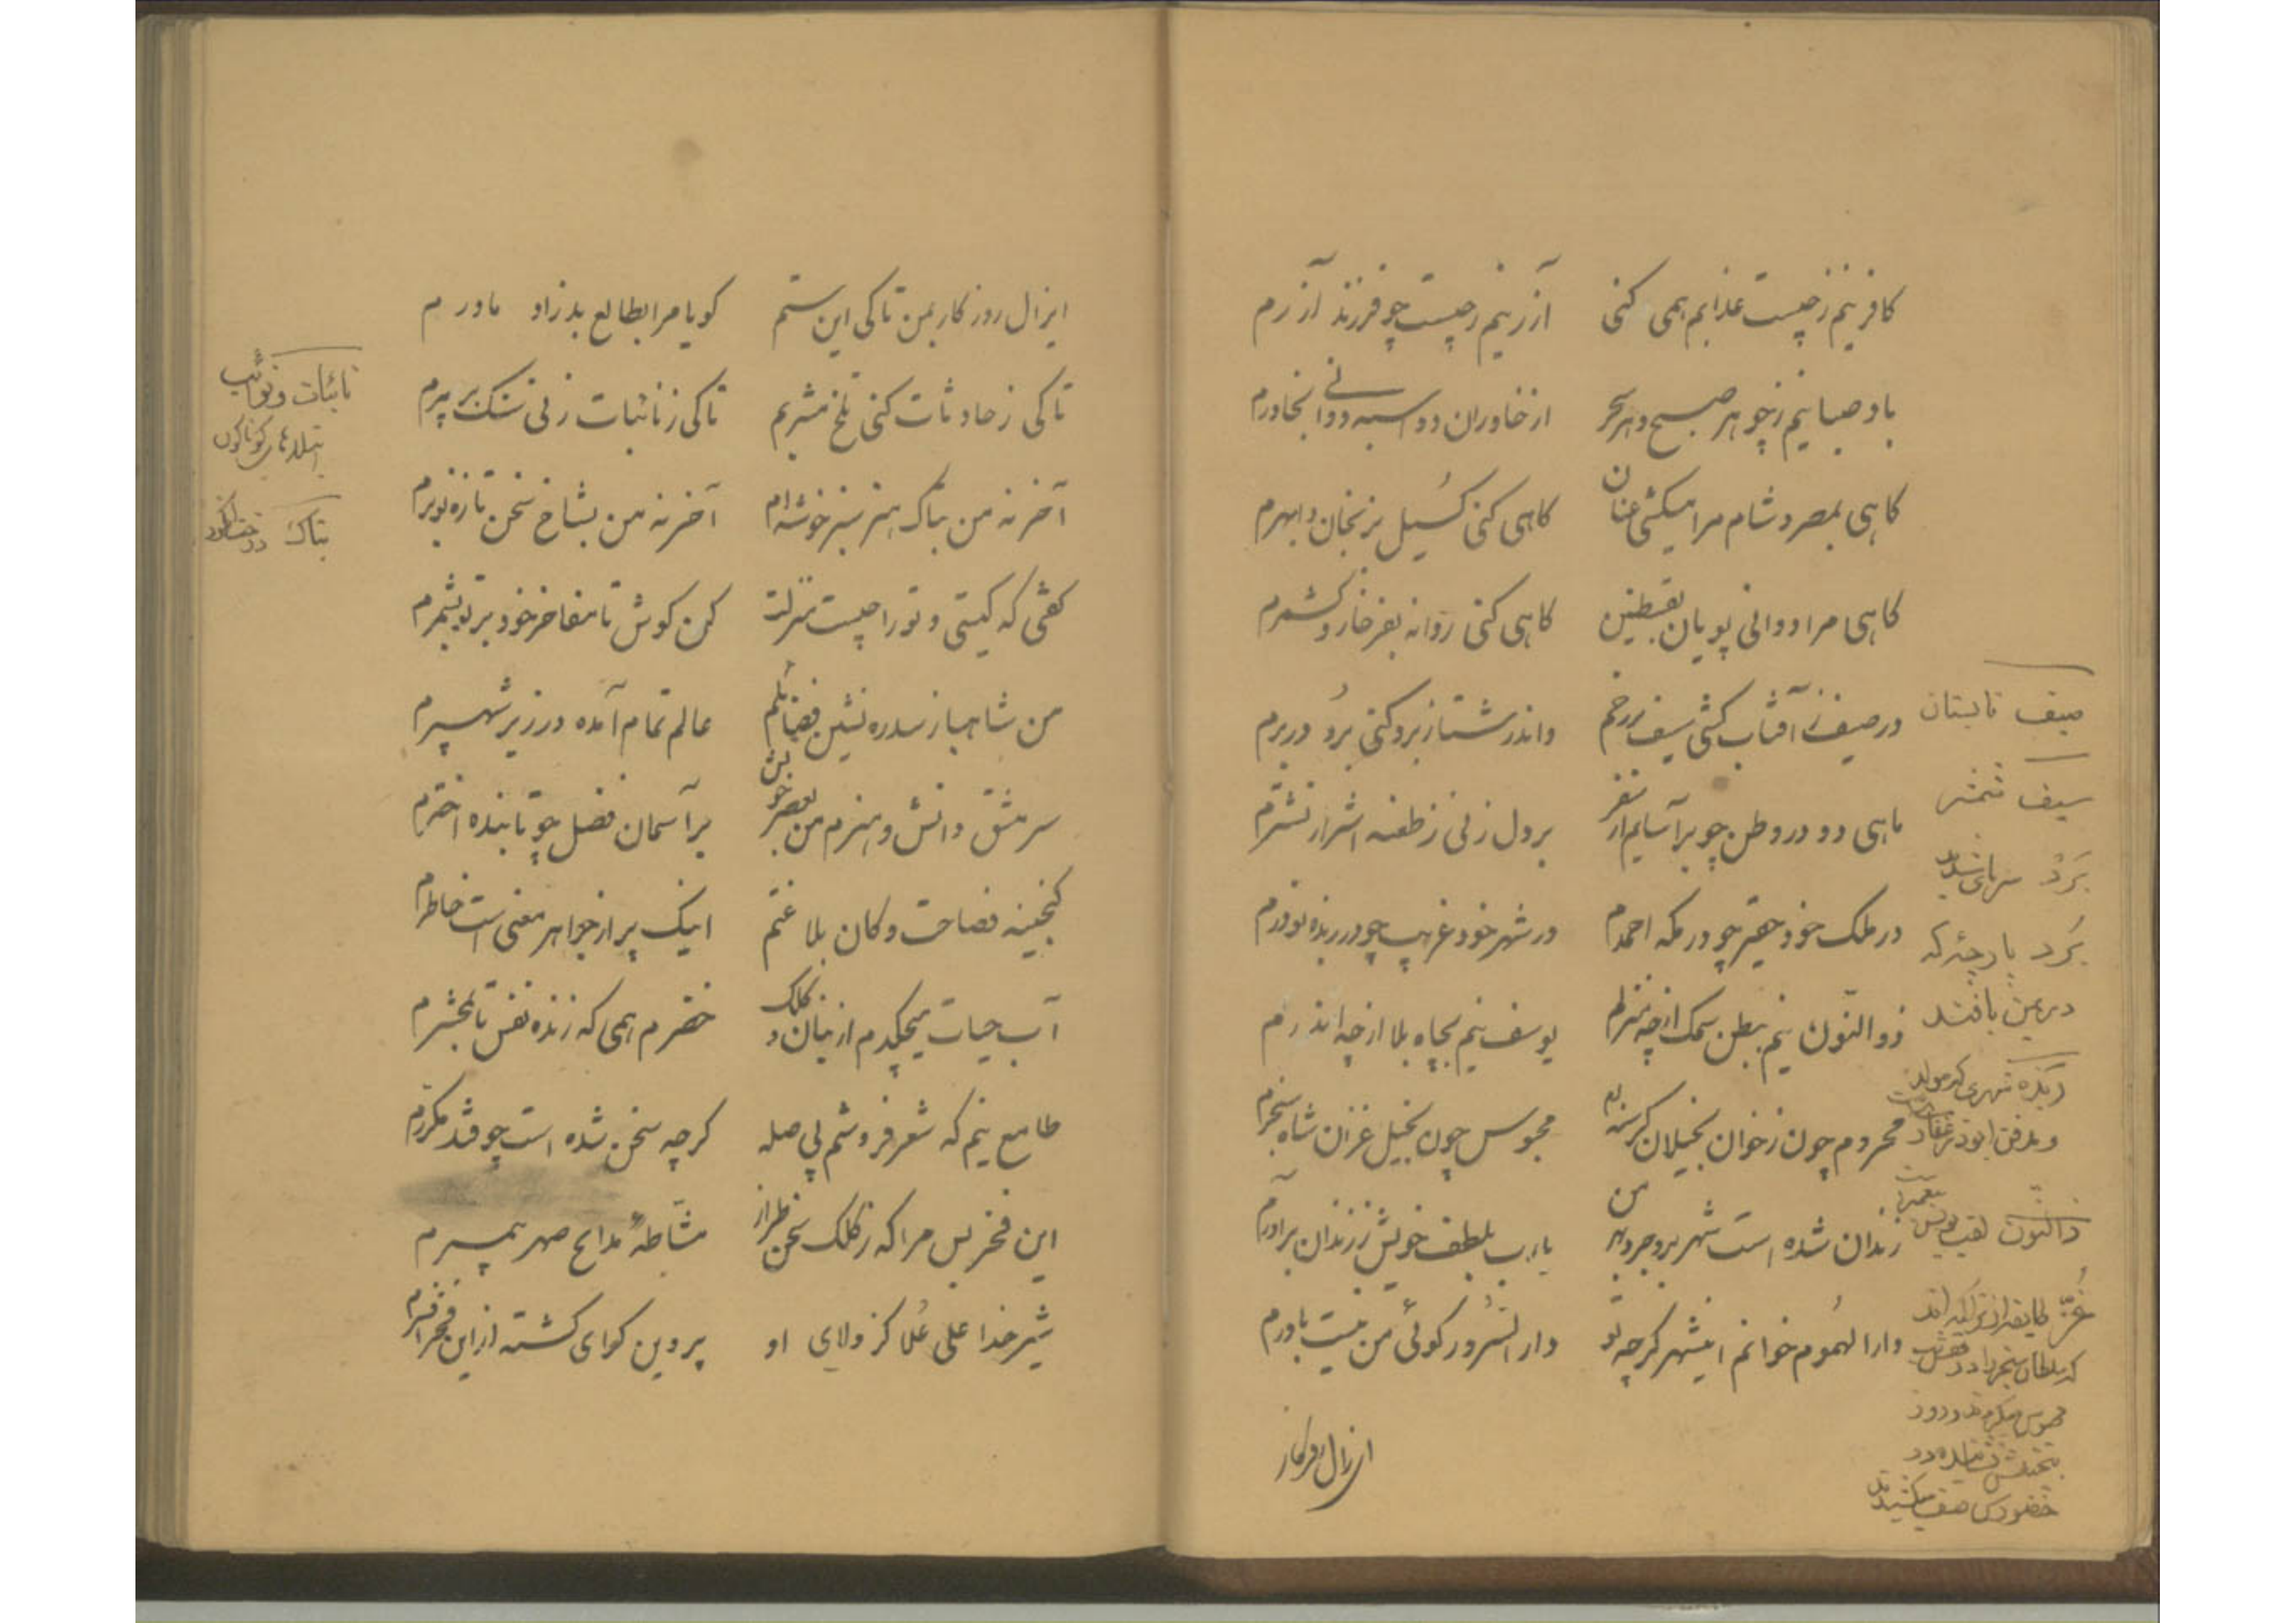 کافر نیم ز چیست عذابم همی کنی    آزر نیم ز چیست چو فرزند آزرم
باد صبا نیم ز چو هر صبح و هر سحر    از خاوران دواسبه دوانی بخاورم
کاهی بمصر و شام مرا میکشی عنان    کاهی کنی کسیل بزنجان و ابهرم
کاهی مرا دوانی پویان بقسطنین    کاهی کنی روانه بفرخار و کشمرم
در صیف ز آفتاب کشی سیف بر رخم    واندر شتا ز برد کنی بُرد در برم
ماهی دو در وطن چو برآسایم از سفر    بر دل زنی ز طعنه اشرار نشترم
در ملک خود حقیر چو در مکه احمدم    در شهر خود غریب چو در ربذه بوذرم
ذوالنّون نیم ببطن سمک از چه منزلم    یوسف نیم بچاه بلا از چه اندرم
محروم چون ز خوان بخیلان کرسنه ام    محبوس چون بخیل غزان شاه سنجرم
زندان شده است شهر بروجرد بهر من    یارب بلطف خویش ز زندان برآورم
دارالهُموم خوانم اینشهر کرچه تو    دارالسُرور کوئی من نیست باورم
از زال روزکار
صیف تابستان
سیف شمشیر
بَرْد سرمای شدید
بُرد پارچهٔ که
در یمن بافند
ربذه شهری که مولد
و مدفن ابوذر غفار است
ذالنّون لقب یونس پیغمبر است
غُزّ طایفه از تراکمه اند
که سلطان سنجر را در قفس
محبوس میکردند و روز
بتختش نشانده در
حضورش صف میکشیدند
ایزال روزکار بمن تا کی این ستم    کویا مرا بطالع بد زاد مادرم
تا کی ز حادثات کنی تلخ مشربم    تا کی ز نائبات زنی سنک بر سرم
آخر نه من بتاک هنر سبز خوشه ام    آخر نه من بشاخ سخن تازه نوبرم
کفتی که کیستی و تو را چیست منزلت    کن کوش تا مفاخر خود بر تو بشمرم
من شاهباز سدره نشین فضائلم    عالم تمام آمده در زیر شهپرم
سرمشق دانش و هنرم من بعصر خویش    بر آسمان فضل چو تابنده اخترم
کنجینه فصاحت و کان بلاغتم    اینک پر از جواهر معنی است خاطرم
آب حیات میچکدم از بنان و کلک    خضرم همی که زنده نفس تا بمحشرم
طامع نیم که شعر فروشم پی صله    کرچه سخن شده است چو قند مکررم
این فخر بس مرا که ز کلک سخن طراز    مشّاطهٔ مدایح صهر پیمبرم
شیر خدا علی عُلا کز ولای او    پروین کوای کشته از این فخر افسرم
نائبات و نوائب
ابتلاهای کوناکون
تاک درخت انکور